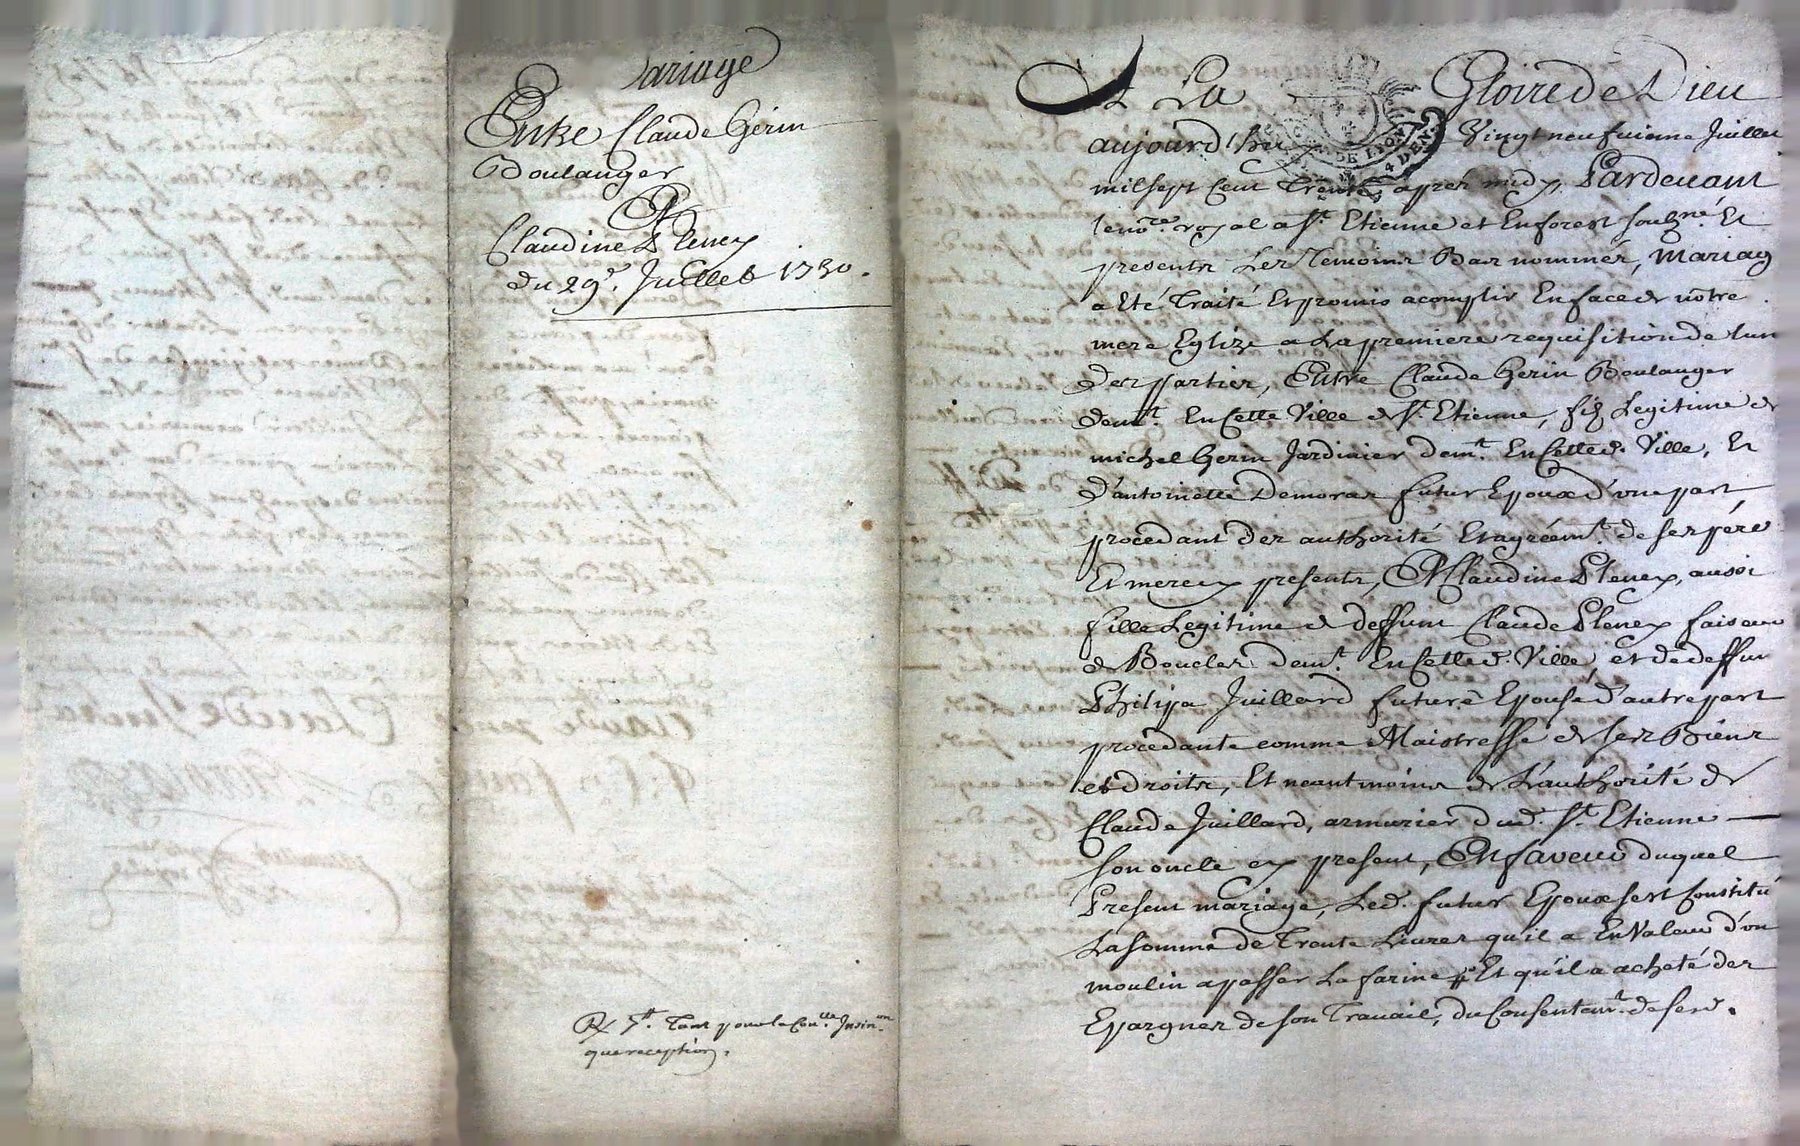 Mariage
Entre Claude Gerin
Boulanger
Et
Claudine Pleney
du 29e. Juillet 1730.
R 7lt. tant pour le Con.lle Insin.on
que reception.
A La Gloire de Dieu
aujourd'huy Vingt neufuieme Juillet
mil sept Cent Trente, apres midy, Pardeuant
le no.re royal a St. Etienne et En forest souzne. Et
presents Les Temoins Bas nommés, Mariag
a Eté Traité Et promis acomplir En face de nôtre
mere Eglize a La premiere requisition de Lun
Des parties, Entre Claude Gerin Boulanger
demt. En Cette Ville de St. Etienne, fiz Legitime de
michel Gerin Jardinier demt. En Cetted. Ville, Et
d'antoinette Demoras futur Epoux d'vne part,
procedant des authorité Et agréemt. de ses pére
Et mere cy presents, Et Claudine Pleney, aussi
fille Legitime de deffunt Claude Pleney faiseur
de Boucles demt. En Cetted. Ville, et de deffun
Philipa Juillard future Epouse d'autre part
procédante comme Maistresse de ses Biens
et droits, Et neantmoins de L'authorité de
Claude Juillard, armurier dud. St. Etienne
son oncle cy present, En faveur duquel
Present mariage, Led. futur Epoux sest Constitué
La somme de Trente Liures qu'il a En Valeur d'un
moulin a passer La farine Et qu'il a acheté des
Epargnes de son Trauail, du Consentemt. de sesd.